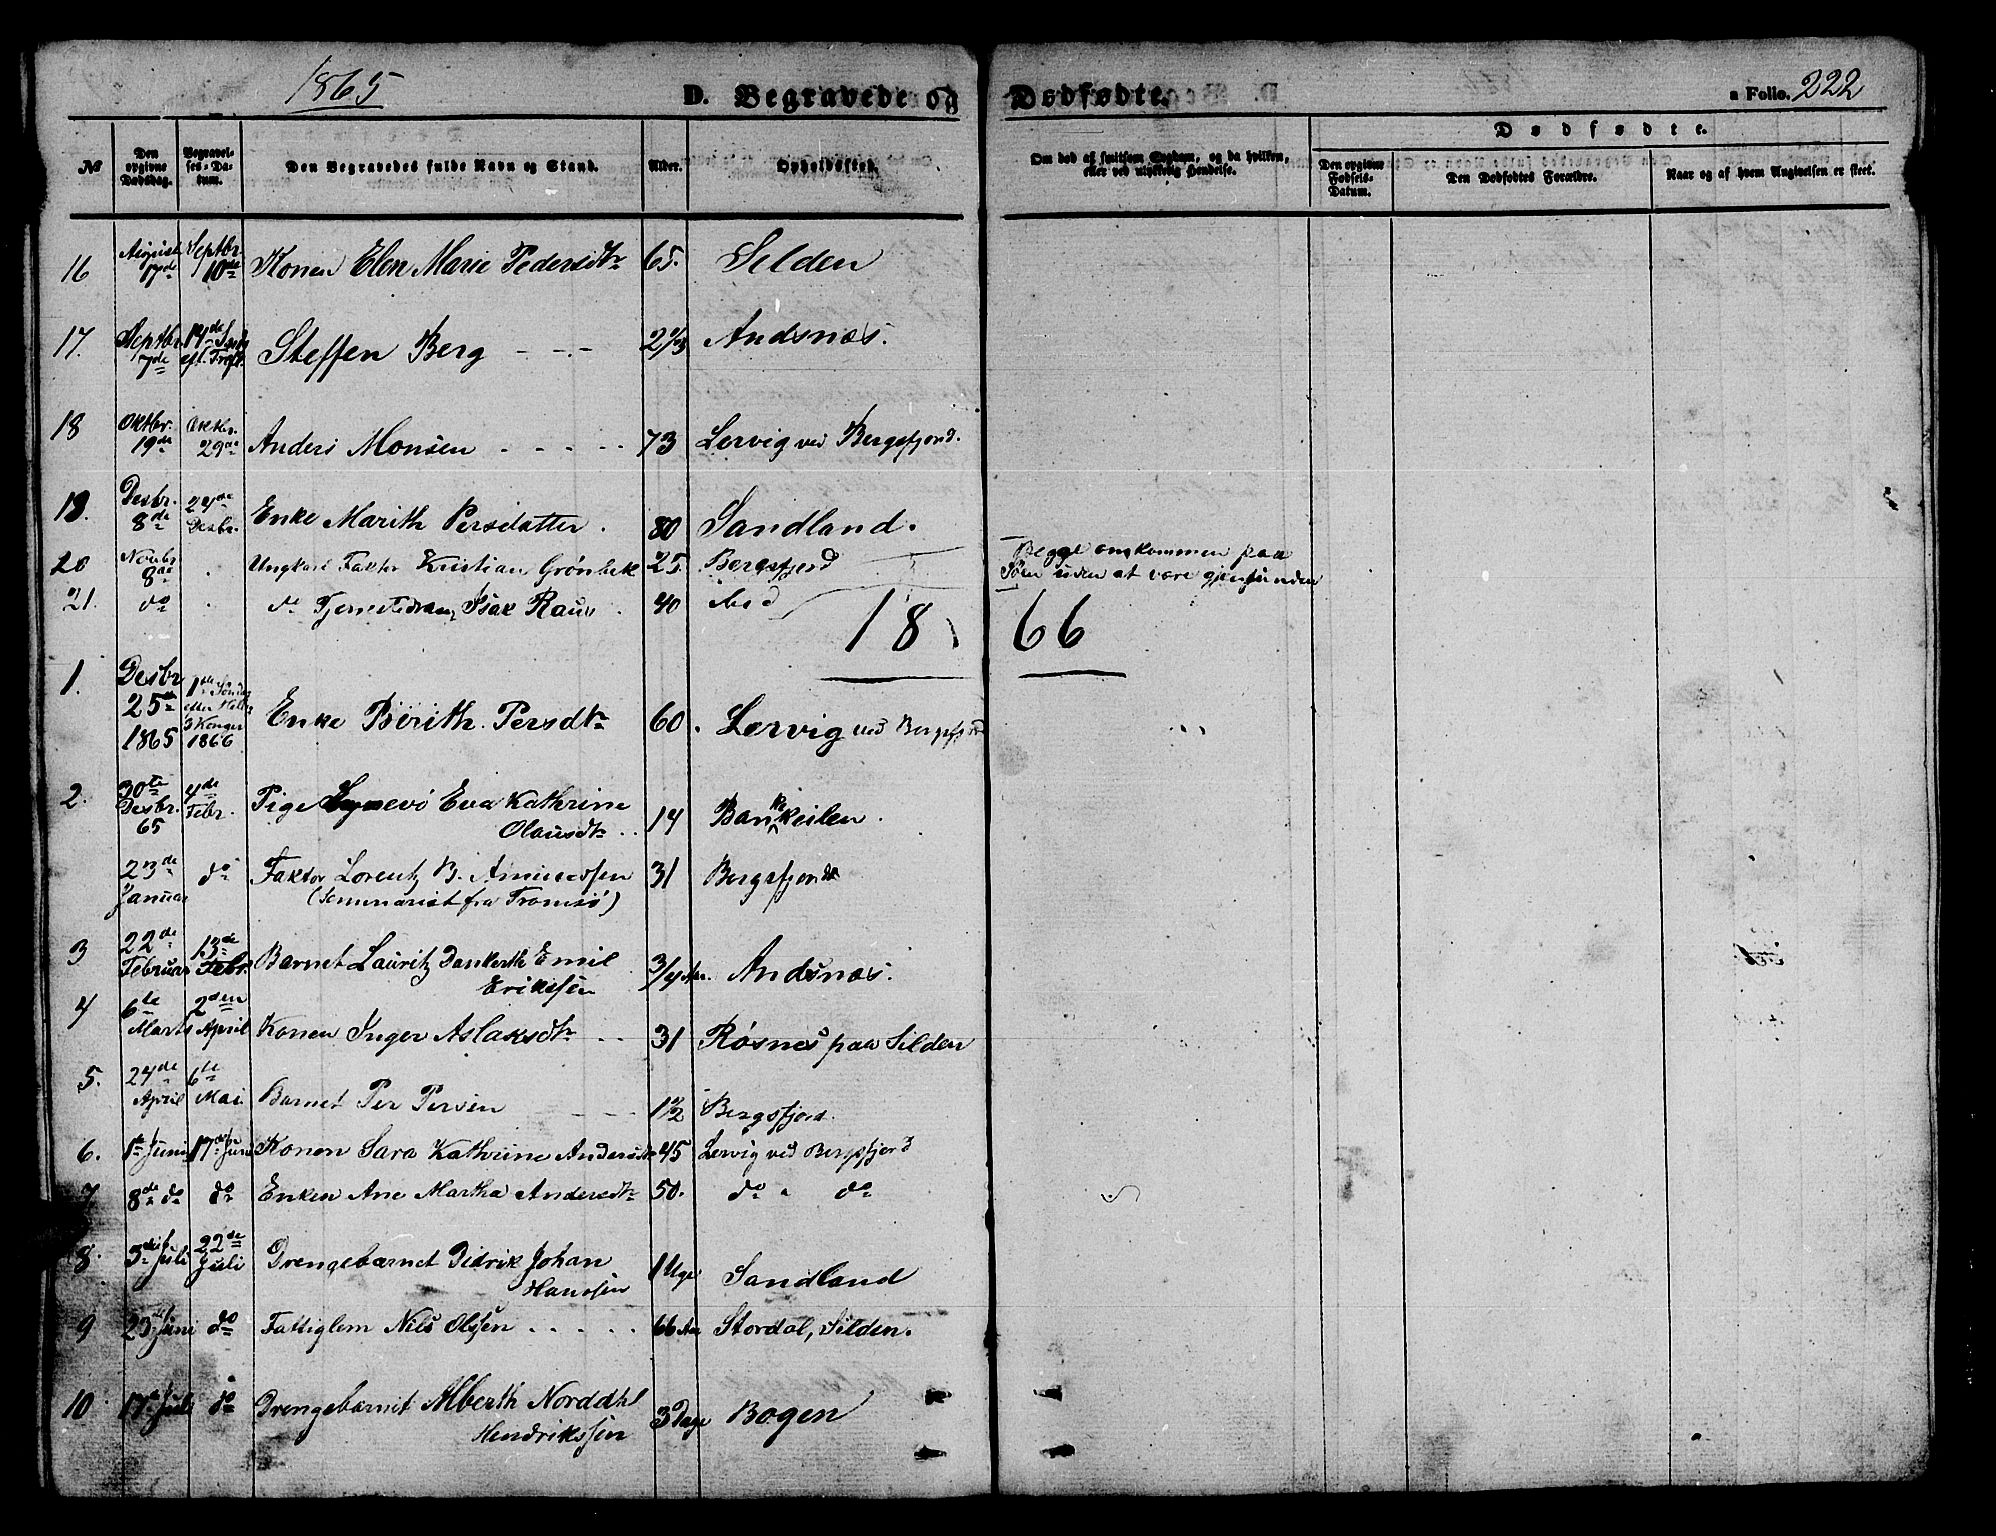 1865
D. Begravede og Dødfødte.
a Folio. 222
No
Den opgivne Dødsdag.
Begravelses-Datum.
Den Begravedes fulde Navn og Stand.
Alder.
Opholdssted.
Om død af smitsom Sygdom, og da hvilken, eller ved ulykkelig Hendelse.
Dødfødte.
Den opgivne Fødsels-Datum.
Den Dødfødtes Forældre.
Naar og af hvem Angivelsen er skeet.
16 August 17de Septbr. 10de Konen Elen Marie Pedersdtr 65. Silden
17. Septbr. 17de Steffen Berg - - - 2 1/3 Andsnæs.
18 Oktbr. 19de Oktbr. 29de Anders Monsen - - - - - 73 Lervig ved Bergsfjord.
19. Desbr. 8de 24de Desbr. Enke Marith Persdatter. 80 Sandland.
20 Novbr 8de Ungkarl Faktor Kristian Grønbek 25 Bergsfjord Begge omkommen paa
Søen uden at være gjenfunden
21. do do Isak 40 ibid
1866
1. Desbr 25de 1865 1ste Søndag efter Hell. 3 Konger 1866 Enke Berith Persdtr 60. Lervig ved Bergsfjord
2. 30te Desbr. 65 4de Febr. Pige Eva Kathrine
Olausdtr 14 Bankekeilen.
23de Januar do Faktor Lorentz B. 31 Bergsfjord
(Seminarist fra Tromsø)
3 22de Februar 13de Febr. Barnet Lauritz Dankerth Emil
Erikssen 3/4 Aar. Andsnæs.
4 6te Marts 2den April Konen Inger Aslaksdtr - - 31 Røsnes paa Silden
5. 24de April 6te Mai. Barnet Per Persen - - - 1 1/2 Bergsfjord.
6. 1ste Juni 17de Juni Konen Sara Kathrine Andersdtr 45 Lervig ved Bergsfjord
7 8de do do Enken Ane Martha Andersdtr 50. do " do
8. Juli 22de Juli Drengebarnet Didrik Johan
Hanssen 1 Uge Sandland
9 23de Juni do Fattiglem Nils Olssen - - - - - 66 Aar Stordal, Silden.
10 17de Juli do Drengebarnet Alberth Norddhl
Hendrikssen 3 Dage Bogen